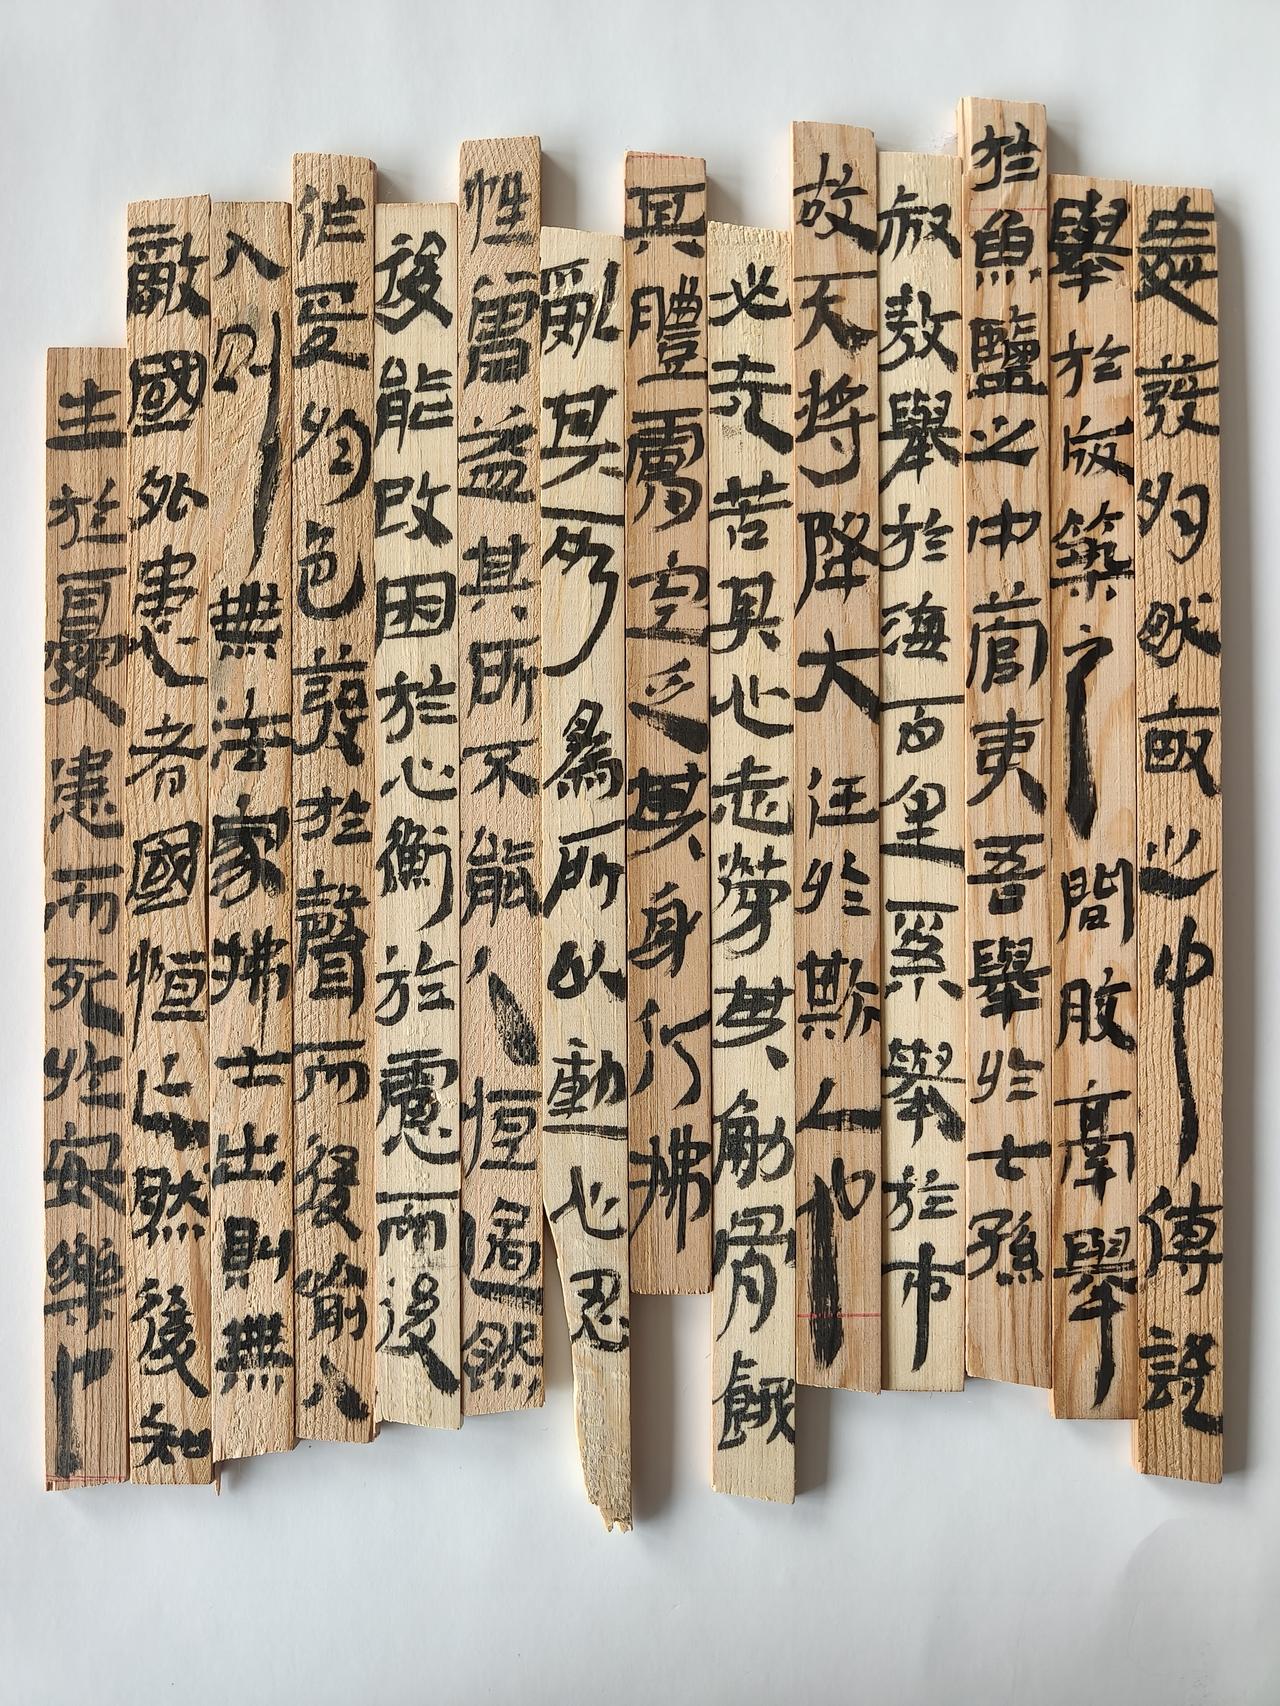 舜發於畎畝之中傅說
舉於版築之間膠鬲舉
於魚鹽之中菅夷吾舉於士孫
叔敖舉於海百里奚舉於市
故天將降大任於斯人也
必先苦其心志勞其筋骨餓
其體膚空乏其身行拂
亂其所為所以動心忍
性曾益其所不能人恒過然
後能改困於心衡於慮而後
作於色發於聲而後喻人
入則無法家拂士出則無
敵國外患者國恒亡然後知
生於憂患而死於安樂也